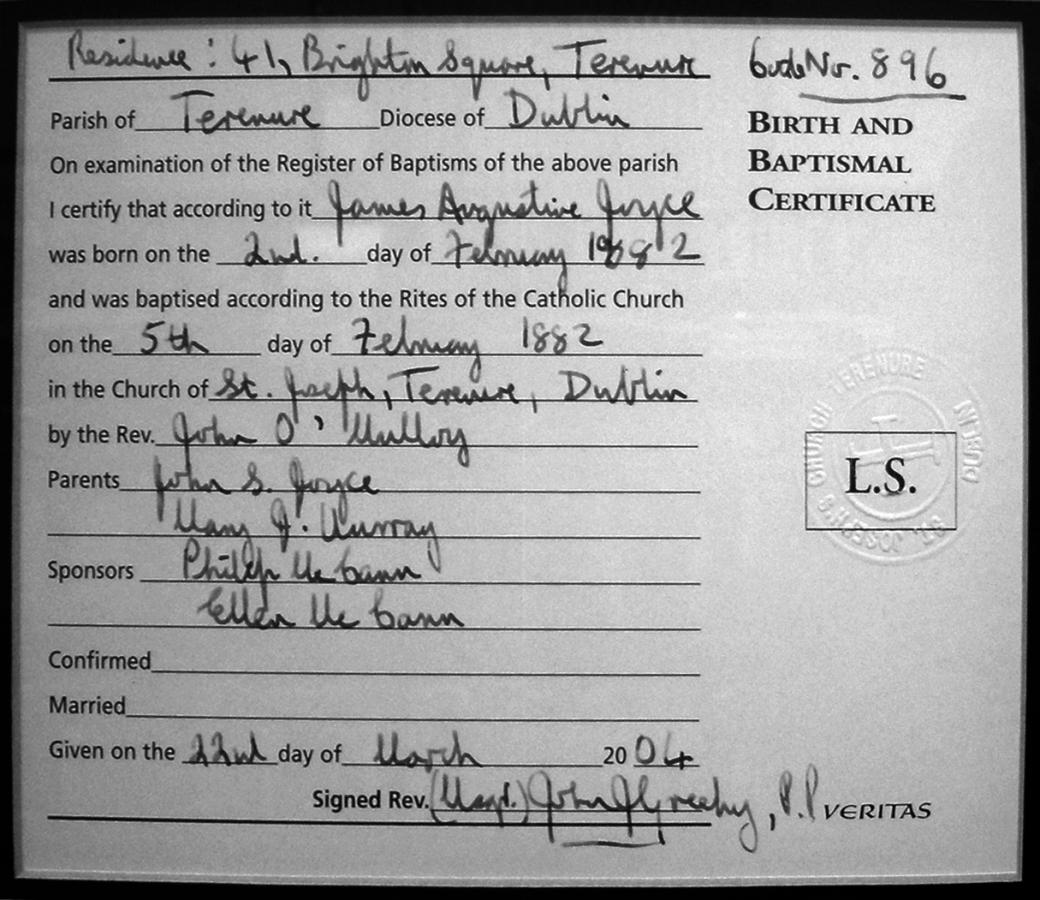 Residence: 41, Brighton Square, Terenure
Code No. 896
Parish of Terenure Diocese of Dublin
BIRTH AND
BAPTISMAL
CERTIFICATE
On examination of the Register of Baptisms of the above parish
I certify that according to it James Augustine Joyce
was born on the 2nd. day of February 1882
and was baptised according to the Rites of the Catholic Church
on the 5th day of February 1882
in the Church of St. Joseph, Terenure, Dublin
by the Rev. John O'Mulloy
Parents John S. Joyce
Mary J. Murray
Sponsors Philip Mc Cann
Ellen Mc Cann
Confirmed
Married
Given on the 22nd day of March 2004
Signed Rev. (Msgr.) John J Greehy, P.P
VERITAS
CHURCH TERENURE DUBLIN ST. JOSEPH'S
L.S.